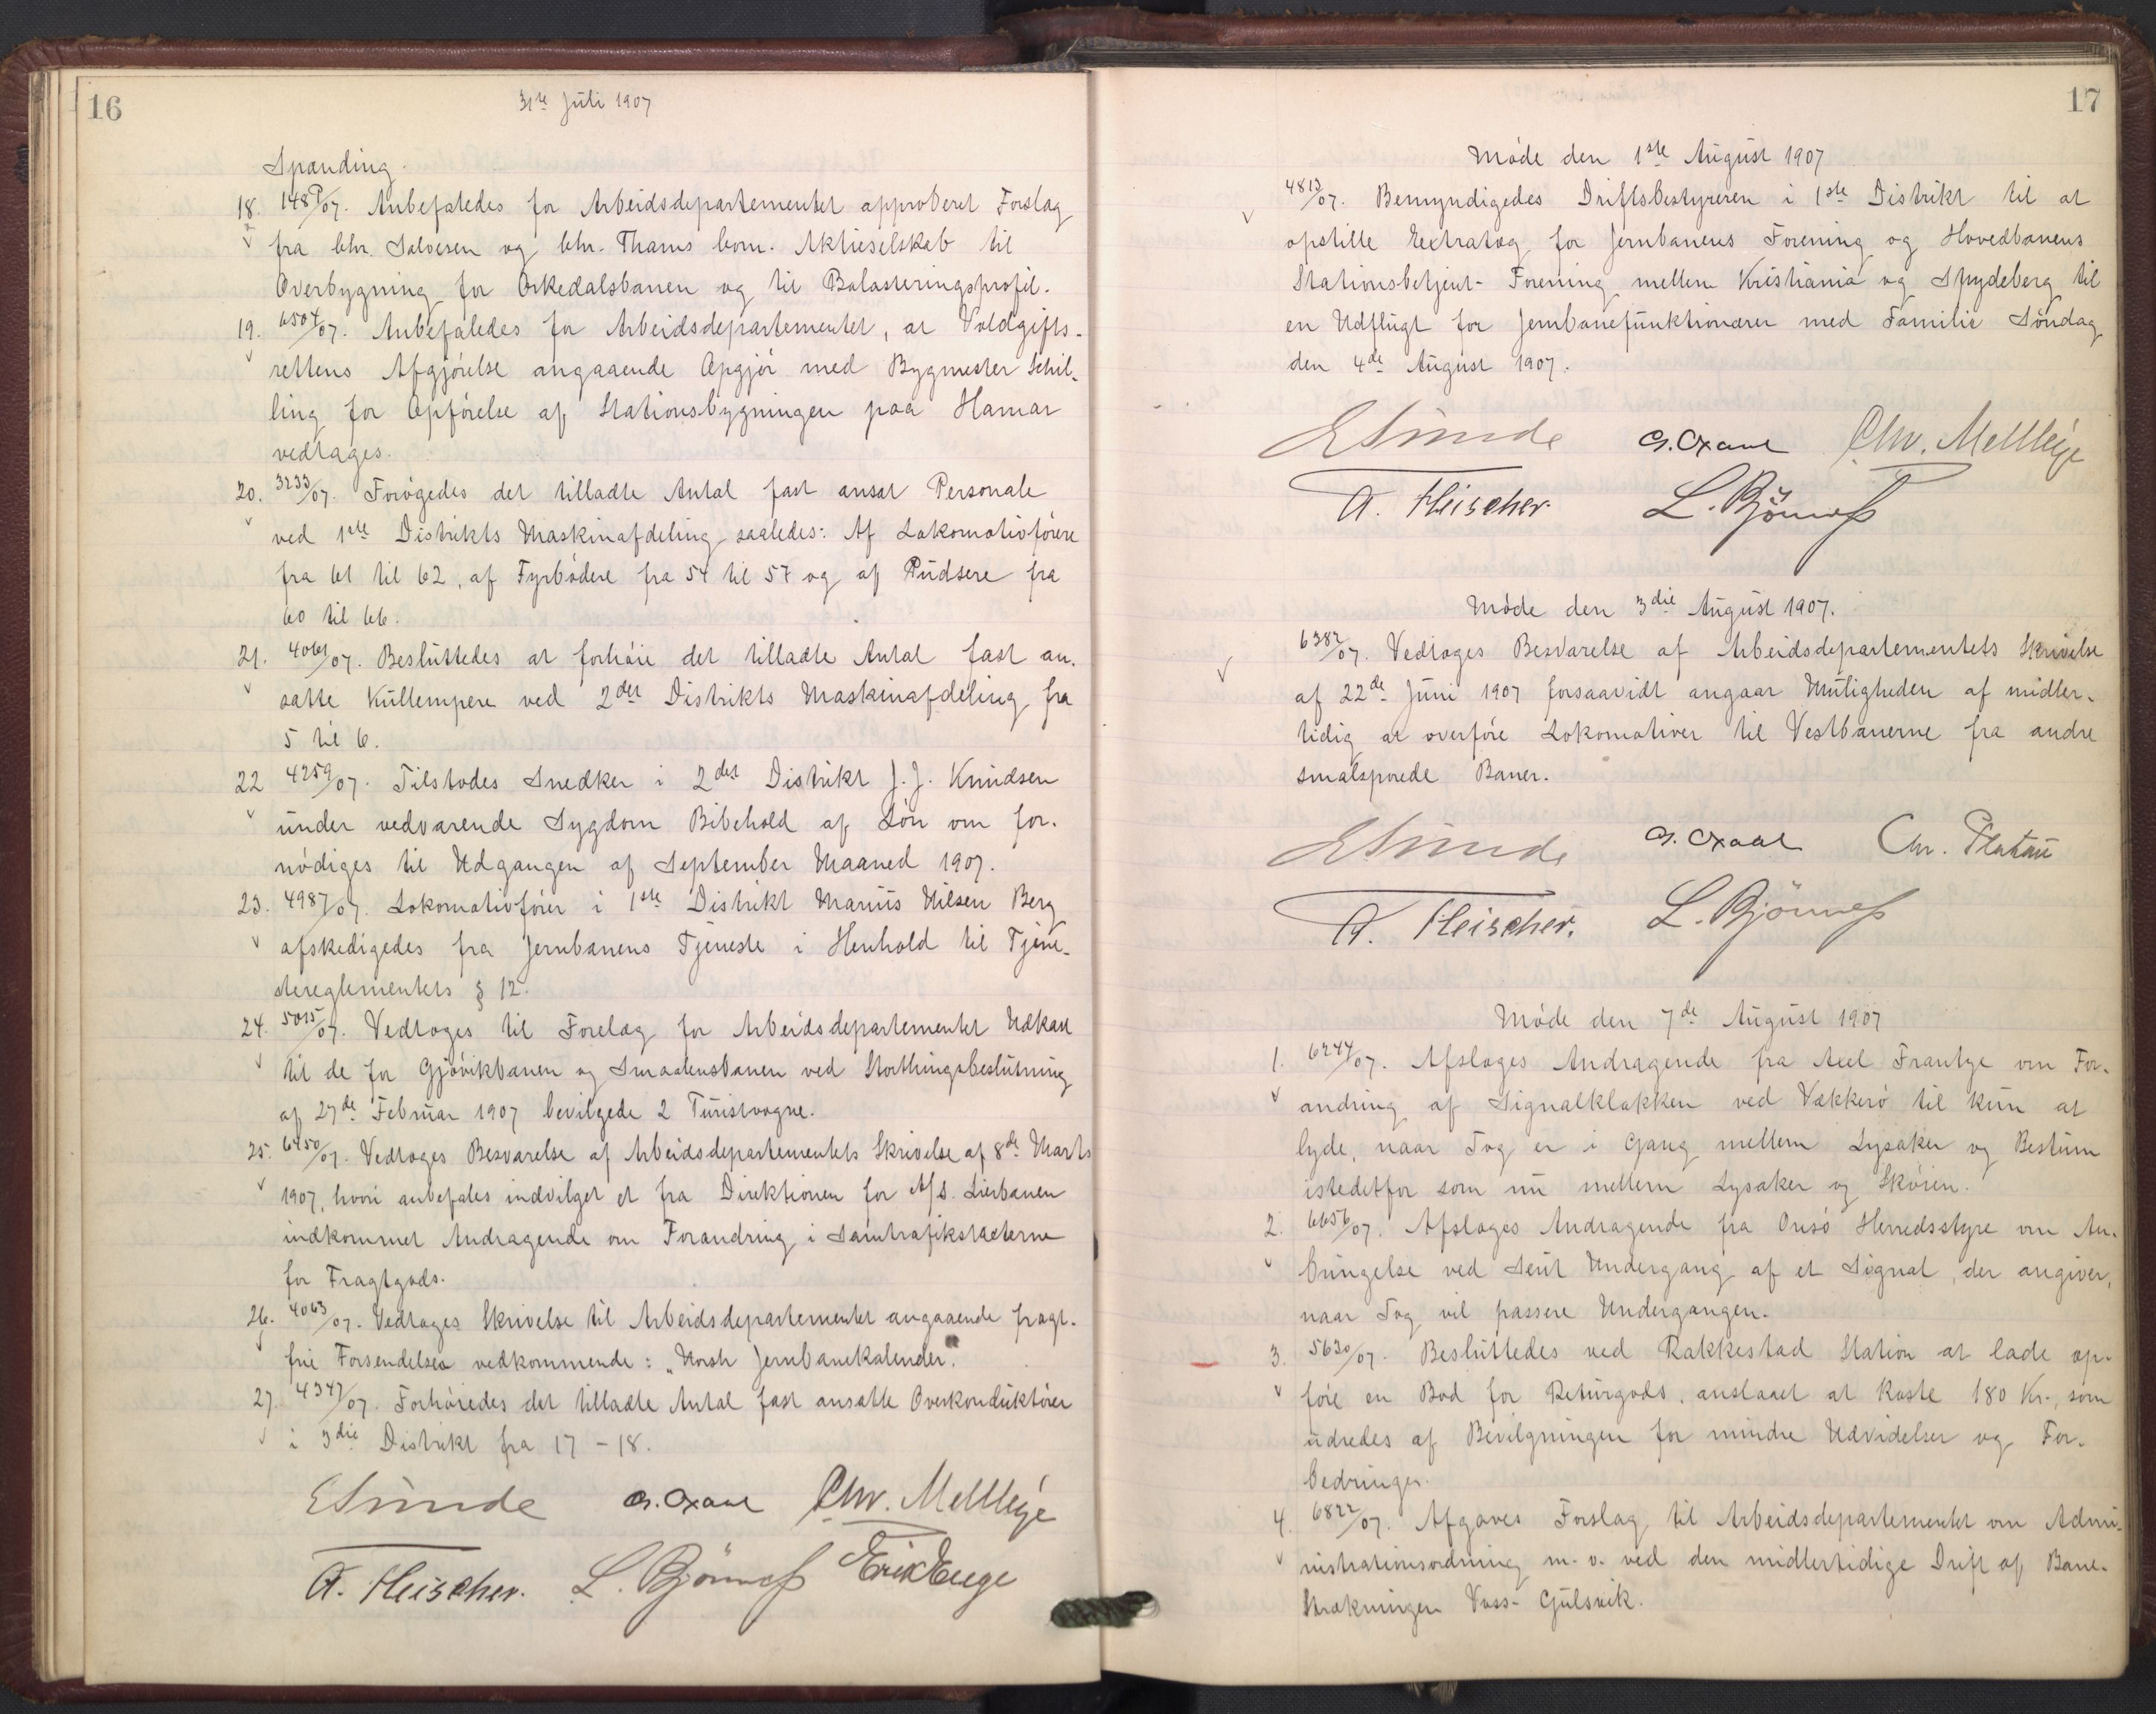 16
31te Juli 1907
Spænding.
18. 148P/07. Anbefaledes for Arbeidsdepartementet approberet Forslag
fra Chr. Salvesen og Chr. Thams Com. Aktieselskab til
Overbygning for Orkedalsbanen og til Balasteringsprofil.
19. 6504/07. Anbefaledes for Arbeidsdepartementet, at Voldgifts-
rettens Afgjörelse angaaende Opgjör med Bygmester Schil-
ling for Opförelse af Stationsbygningen paa Hamar
vedtages.
20. 3233/07. Forögedes det tilladte Antal fast ansat Personale
ved 1ste Distrikts Maskinafdeling saaledes: Af Lokomotivförere
fra 61 til 62, af Fyrbödere fra 54 til 57 og af Pudsere fra
60 til 66.
21. 4061/07. Besluttedes at forhöie det tilladte Antal fast an-
satte Kullempere ved 2det Distrikts Maskinafdeling fra
5 til 6.
22 4259/07. Tilstodes Snedker i 2det Distrikt J. J. Knudsen
under vedvarende Sygdom Bibehold af Lön om for-
nödiges til Udgangen af September Maaned 1907.
23. 4987/07. Lokomotivförer i 1ste Distrikt Marius Nilsen Berg
afskedigedes fra Jernbanens Tjeneste i Henhold til Tjene-
stereglementets § 12.
24. 5015/07. Vedtoges til Forelæg for Arbeidsdepartementet Udkast
til de for Gjövikbanen og Smaalensbanen ved Storthingsbeslutning
af 27de Februar 1907 bevilgede 2 Turistvogne.
25. 6450/07. Vedtoges Besvarelse af Arbeidsdepartementets Skrivelse af 8de Marts
1907, hvori anbefales indvilget et fra Direktionen for A/S. Lierbanen
indkommet Andragende om Forandring i Samtrafikstaxterne
for Fragtgods.
26. 4063/07. Vedtoges Skrivelse til Arbeidsdepartementet angaaende fragt-
frie Forsendelser vedkommende: "Norsk Jernbanekalender".
27. 4347/07. Forhöiedes det tilladte Antal fast ansatte Overkonduktörer
i 3die Distrikt fra 17 - 18.
E Sunde G. Oxaal Chr. Mellbye
A. Fleischer. L. Bjönness Erik Enge
17
Möde den 1ste August 1907
4813/07. Bemyndigedes Driftsbestyreren i 1ste Distrikt til at
opstille Extratog for Jernbanens Forening og Hovedbanens
Stationsbetjent-Forening mellem Kristiania og Spydeberg til
en Udflugt for Jernbanefunktionærer med Familie Söndag
den 4de August 1907.
E Sunde G. Oxaal Chr. Mellbye
A. Fleischer. L. Bjönness
Möde den 3die August 1907.
6382/07. Vedtoges Besvarelse af Arbeidsdepartementets Skrivelse
af 22de Juni 1907 forsaavidt angaar Muligheden af midler-
tidig at overföre Lokomotiver til Vestbanerne fra andre
smalsporede Baner.
E Sunde G. Oxaal Chr. Platou
A. Fleischer. L. Bjönness
Möde den 7de August 1907
1. 6244/07. Afsloges Andragende fra Axel Frantze om For-
andring af Signalklokken ved Vækkerö til kun at
lyde, naar Tog er i Gang mellem Lysaker og Bestum
istedetfor som nu mellem Lysaker og Sköien.
2. 6656/07. Afsloges Andragende fra Onsö Herredsstyre om An-
bringelse ved Seut Undergang af et Signal, der angiver,
naar Tog vil passere Undergangen.
3. 5630/07. Besluttedes ved Rakkestad Station at lade op-
före en Bod for Returgods, anslaaet at koste 180 Kr., som
udredes af Bevilgningen for mindre Udvidelser og For-
bedringer.
4. 6822/07. Afgaves Forslag til Arbeidsdepartementet om Admi-
nistrationsordning m. v. ved den midlertidige Drift af Bane-
strækningen Voss-Gulsvik.